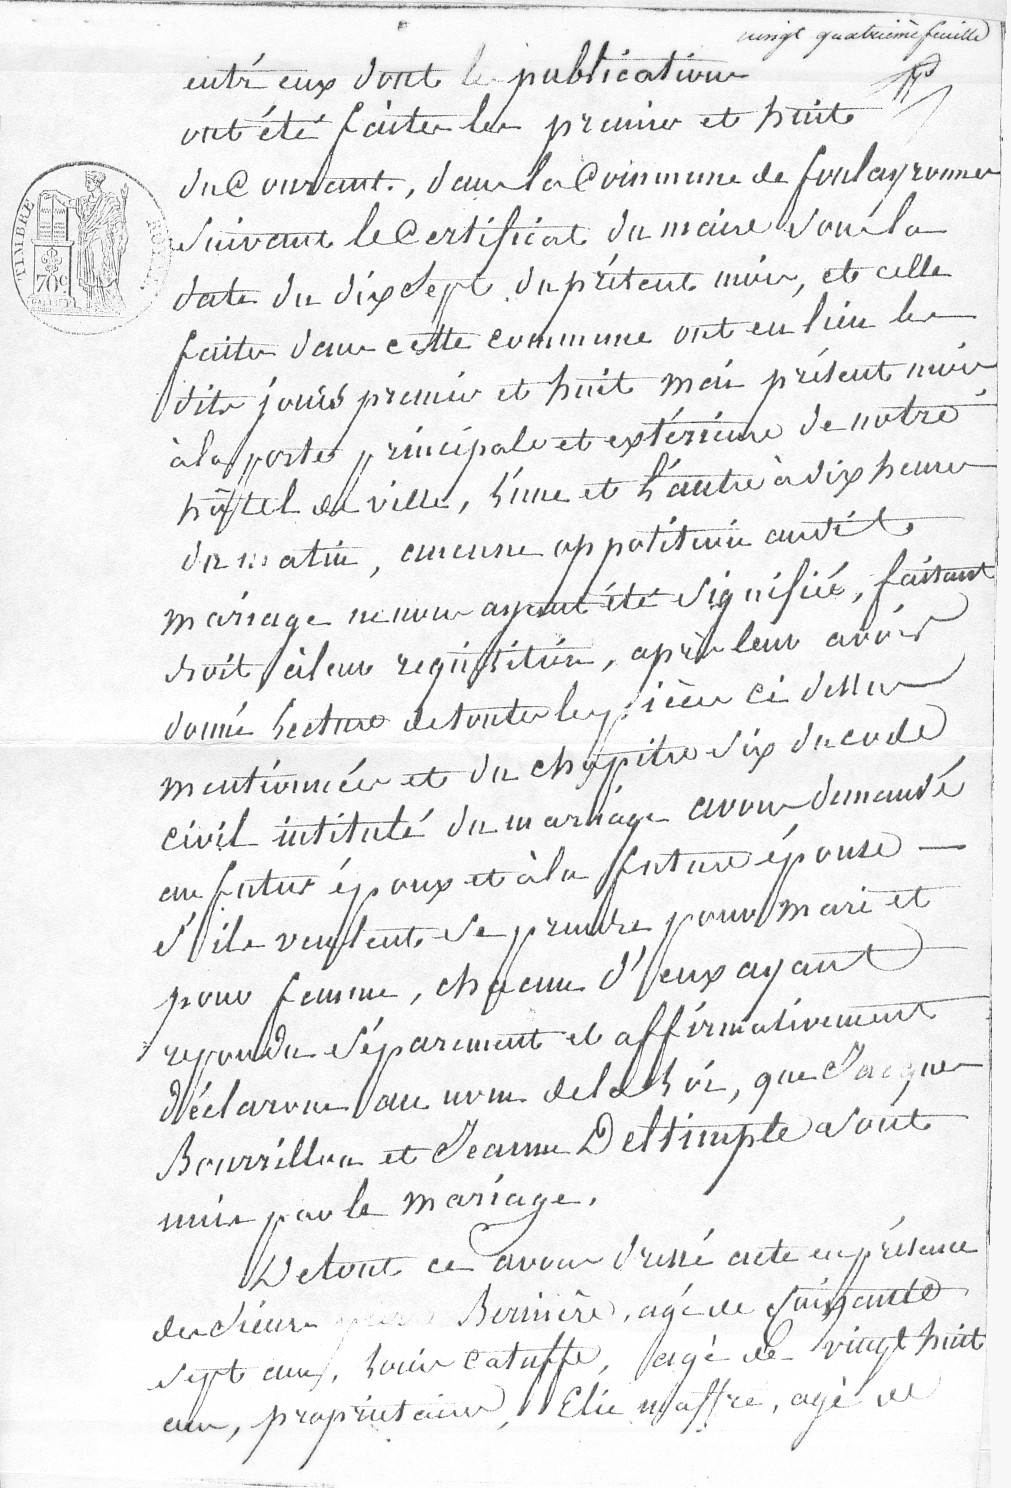 vingt quatrieme feuille
entr'eux dont les publications
ont été faites les premier et huit
du courant, dans la Commune de foulayronnes
suivant le Certificat du maire sous la
date du dix sept du présent mois, et celles
faites dans cette commune ont eu lieu les
dits jours premier et huit mai présent mois
à la porte principale et extérieure de notre
hôtel de ville, l'une et l'autre à dix heures
du matin, aucune oppotition audit
mariage ne nous ayant été signifiée, faisant
droit à leur requisition, après leur avoir
donné lecture de toutes les pièces ci dessus
mentionnées et du chapitre six du code
civil intitulé du mariage avons demandé
au futur époux et à la future épouse
s'ils veulent se prendre pour mari et
pour femme, chacun d'eux ayant
repondu séparement et affirmativement
déclarons au nom de la loi, que Jacques
Bourrillon et Jeanne Delsimples sont
unis par le mariage.
De tout ce avons dressé acte en présence
des sieurs Bernière, agé de soixante
sept ans, Louis Catuffe, agé de vingt huit
ans, propriétaires, Elie maffre, agé de
TIMBRE
70c